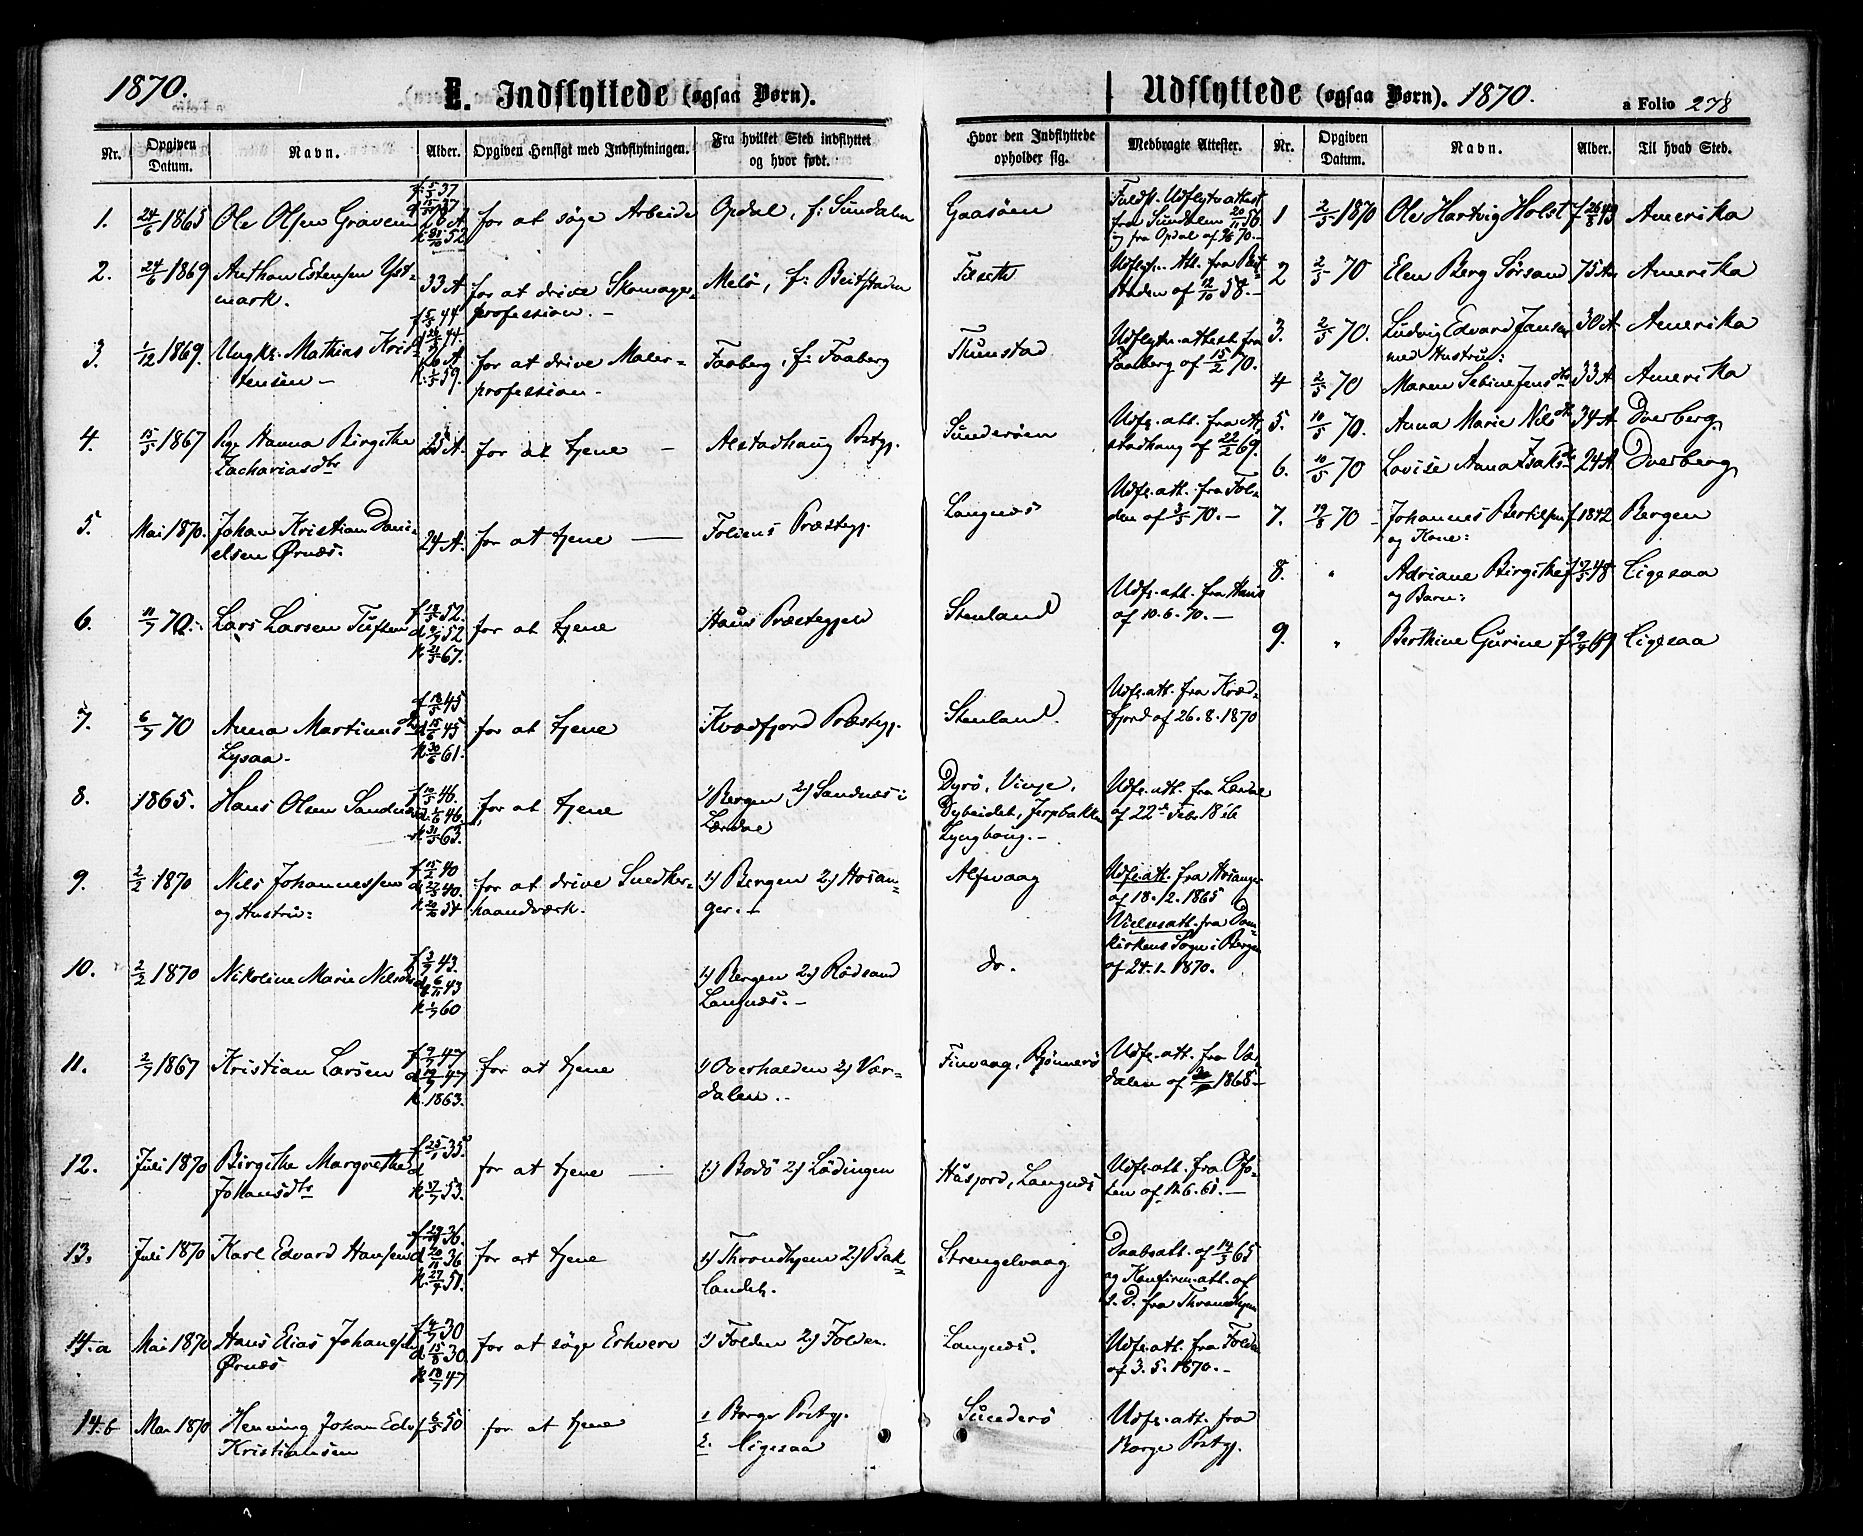 1870.
E. Indflyttede (ogsaa Børn).
Udflyttede (ogsaa Børn). 1870.
a Folio 278
Nr.
Opgiven Datum.
Navn.
Alder.
Opgiven Hensigt med Indflytningen.
Fra hvilket Sted indflyttet og hvor født.
Hvor den Indflyttede opholder sig.
Medbragte Attester.
Nr.
Opgiven Datum.
Navn.
Alder.
Til hvad Sted.
1. 24/6 1865 Ole Olsen Gravem for at søge Arbeide Opdal, f: Sundalen Gaasöen
Udflytn.attest
fra Sundalen 20/11 56
og fra Opdal af
2. 24/6 1869 Anthon Estensen Yst-
mark. 33 A for at drive Skomager-
profession. - Melö, f: Beitstaden
Udflytn. Att. fra Beit-
staden af 12/10 58. -
3. 1/12 1869. Ungk. Mathias Kris-
tensen - for at drive Maler-
profession - Faaberg, f: Faaberg Tunstad
Udflytn.attest fra
Faaberg af 15/2 70.
4. 15/5 1867 Pige Hanna Birgithe
Zachariasdtr 25 A. for at tjene - Alstadhaug Prstgj. Sunderöen
Udfl. att. fra Al-
stadhaug af 22/2 69.
5. Mai 1870. Johan Kristian Dani-
elsen Ørnæs. 24 A. for at tjene Foldens Præstegj. Langnæs
Udfl. att. fra Fol-
den af 3/5 70. -
6. 11/7 70. Lars Larsen Tuften for at tjene Haus Præstegjeld Stenland
Udfl. att. fra Haus
af 10-6-70. -
7. 6/7 70 Anna Martinusdtr
Lysaa. for at tjene Kvædfjord Præstegj. Stenland.
Udfl. att. fra Kvæd-
fjord af 26.8.1870
8. 1865. Hans Olsen Sandnæs for at tjene 1) Bergen 2) Sandnæs i
Lærdal Dyrö, Vinje,
Dybeidet, Jerpbakken
Lynghaug. -
Udfl. att. fra Lærdal
9. 2/2 1870 Nils Johannessen
og Hustru: for at drive Snedker-
haandværk. 1) Bergen 2) Hosan-
ger. - Alfsvaag
Udfl. att. fra Hosanger
af 18-12-1865
Vielsesatt. fra Dom-
kirkens Sogn i Bergen
af 24-1-1870.
10. 2/2 1870 Nikoline Marie Nilsdtr 1) Bergen 2) Rödsand
Langnæs. - do.
11. 2/7 1867 Kristian Larsen for at tjene 1) Overhalden 2) Vær-
dalen. - Finvaag, Bjönnerö
Udfl. att. fra Vær-
dalen af 1868 -
12. Juli 1870 Birgithe Margrethe
Johansdtr f 25/1 35. for at tjene 1) Bodö 2) Lödingen Haafjord, Langnæs
Udfl. att. fra Ofo-
ten af
13. Juli 1870 Karl Edvard Hansen for at tjene 1) Throndhjem 2) Bak-
landet. Strengelvaag
Daabsatt. af 19/3 65
og Konfirm. att. af
s. D. fra Throndhjem
14.a Mai 1870 Hans Elias Johansen
Ørnæs f 4/7 30 d 15/8 30 k 18/7 47 for at søge Erhverv 1) Folden 2) Folden Langnæs.
Udfl. att. fra Folden
af 3.5.1870. -
14.b Mai 1870 Henning Johan Edv.
Kristiansen f 6/5 50 for at tjene 1 Borge Prstgj.
2. ligesaa Sunderö
Udfl. att. fra
Borge Prstgj.
1 2/5 1870 Ole Hartvig Holst f 26/8 43 Amerika
2 2/5 70 Elen Berg Sörsan 75 A Amerika
3. 2/5 70. Ludvig Edvard Jansen
med Hustru: 30 A Amerika
4 2/5 70 Maren Sebine Jensdtr 33 A Amerika
5. 10/5 70. Anna Marie Nilsdtr 34 A Dverberg
6. 10/5 70 Lovise Anna Isaksdtr 24 A Dverberg
7. 19/8 70 Johannes Bertilsen
og Kone: f. 1842 Bergen
8. " Adriane Birgithe
og Barn: Ligesaa
9. " Berthine Gurine f 9/9 69 Ligesaa